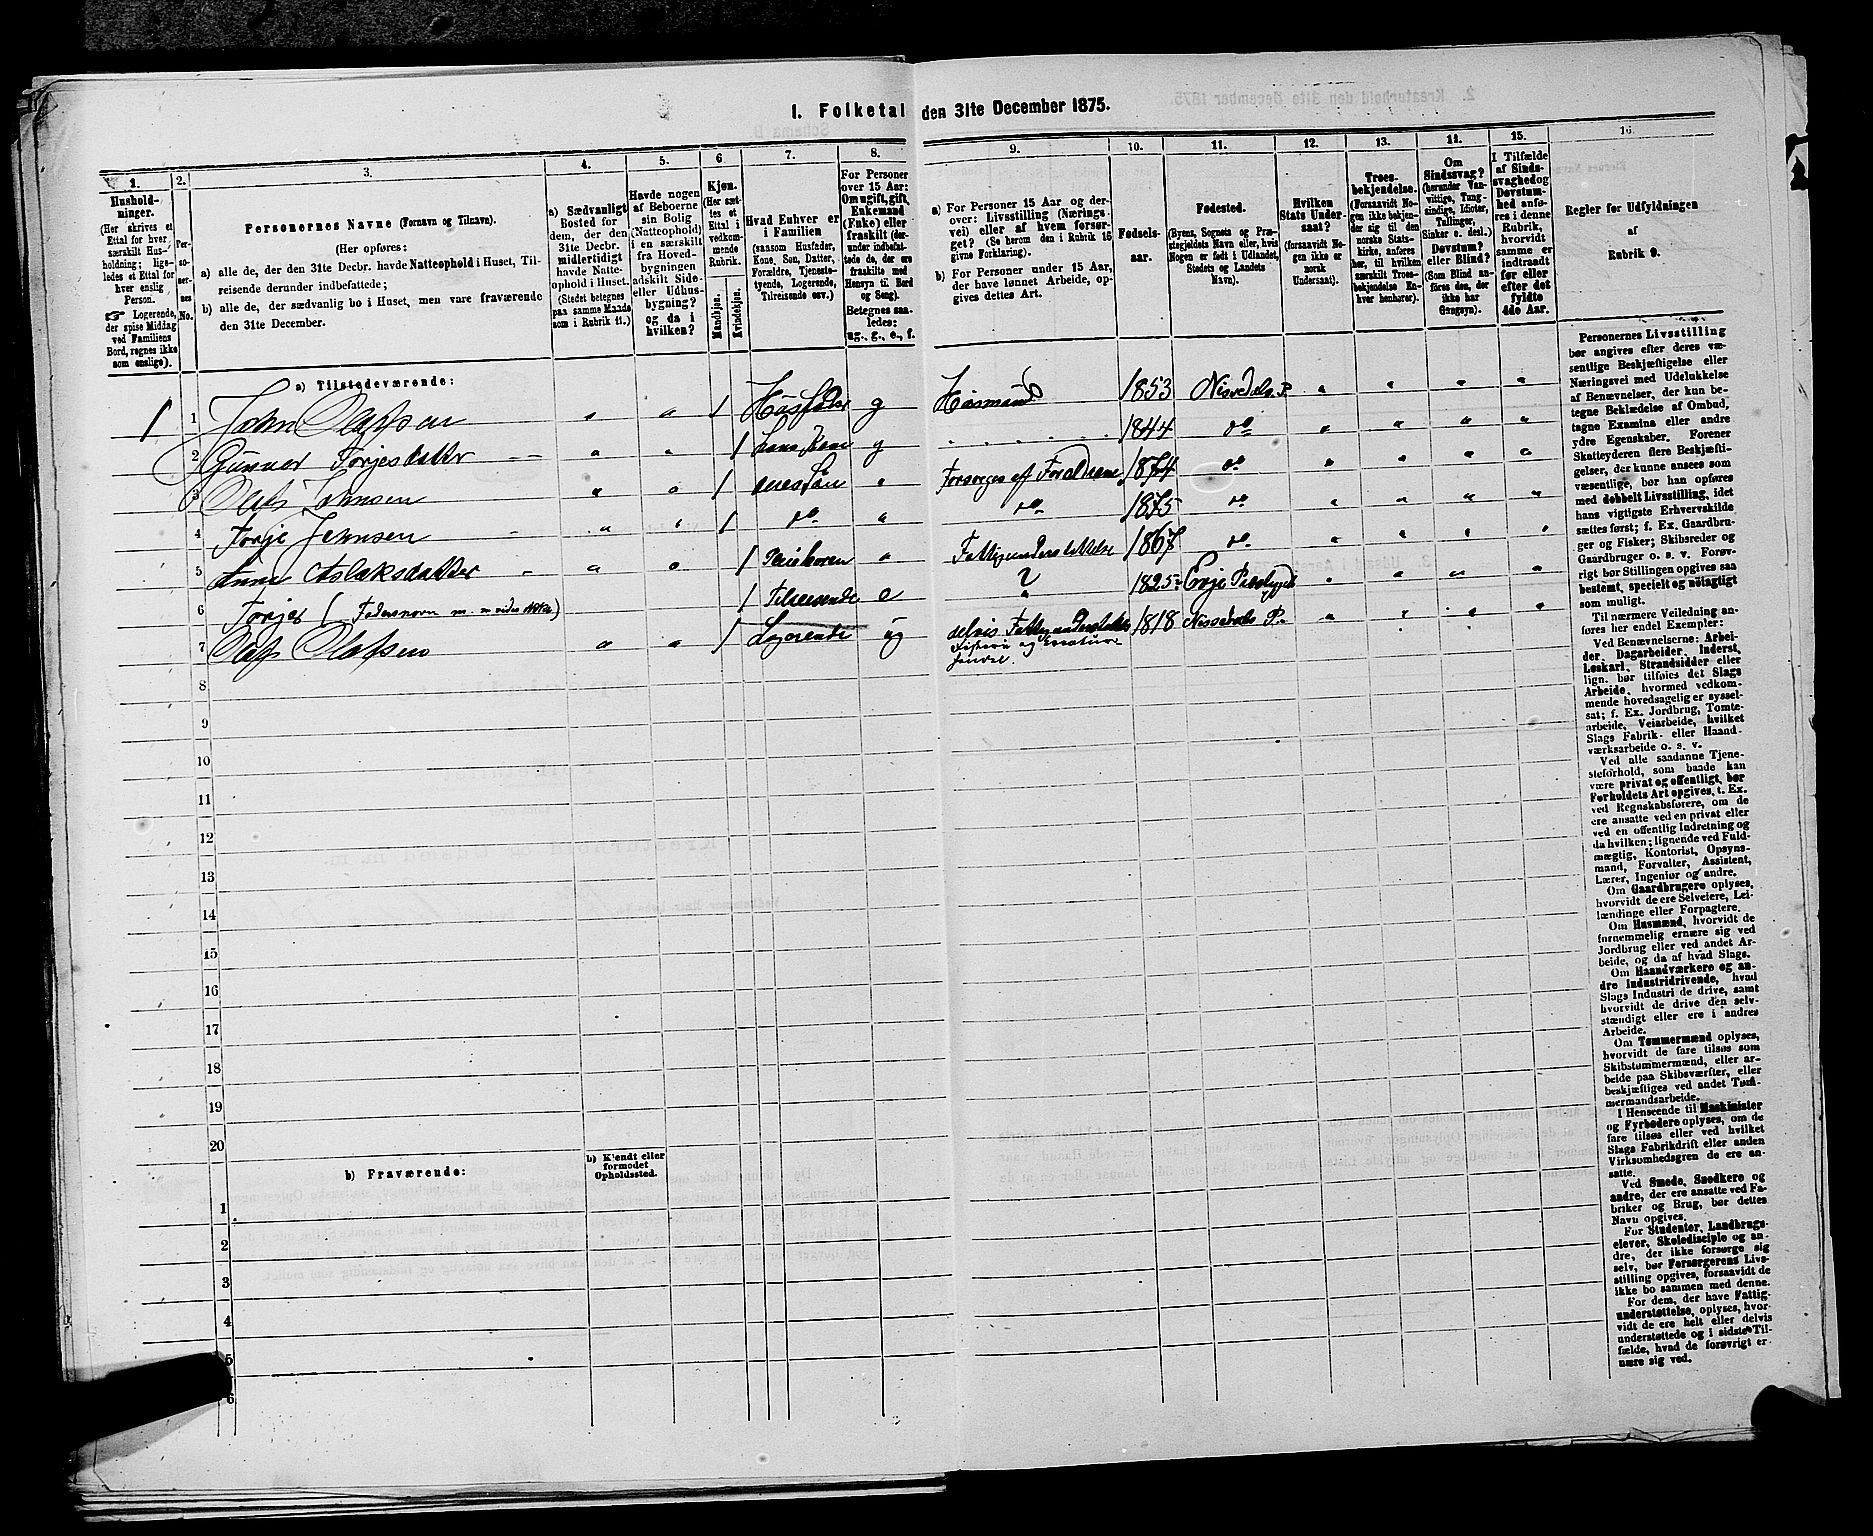 1. Folketal den 31te December 1875.
1.
Hushold-
ninger.
(Her skrives et
Ettal for hver
særskilt Hus-
holdning; lige-
ledes et Ettal for
hver enslig
Person.
☞ Logerende,
der spise Middag
ved Familiens
Bord, regnes ikke
som enslige).
2.
Per-
so-
ner-
nes
No.
3.
Personernes Navne (Fornavn og Tilnavn).
(Her opføres:
a) alle de, der den 31te Decbr. havde Natteophold i Huset, Til-
reisende derunder indbefattede;
b) alle de, der sædvanlig bo i Huset, men vare fraværende
den 31te December.
4.
a) Sædvanligt
Bosted for
dem, der den
31te Decbr.
midlertidigt
havde Natte-
ophold i Huset.
(Stedet betegnes
paa samme Maade
som i Rubrik 11.)
5.
Havde nogen
af Beboerne
sin Bolig
(Natteophold)
i en særskilt
fra Hoved-
bygningen
adskilt Side-
eller Udhus-
bygning?
og da i
hvilken?
6
Kjøn.
(Her sæt-
tes et
Ettal i
vedkom-
mende
Rubrik.
Mandkjøn.
Kvindekjøn.
7.
Hvad Enhver er
i Familien
(saasom Husfader,
Kone, Søn, Datter,
Forældre, Tjeneste-
tyende, Logerende,
Tilreisende osv.)
8.
For Personer
over 15 Aar:
Om ugift, gift,
Enkemand
(Enke) eller
fraskilt (der-
under indbefat-
tede de, der ere
fraskilte med
Hensyn til Bord
og Seng).
Betegnes saa-
ledes:
ug., g., e., f.
9.
a) For Personer 15 Aar og der-
over: Livsstilling (Nærings-
vei) eller af hvem forsør-
get? (Se herom den i Rubrik 16
givne Forklaring).
b) For Personer under 15 Aar,
der have lønnet Arbeide, op-
gives dettes Art.
10.
Fødsels-
aar.
11.
Fødested.
(Byens, Sognets og Præ-
stegjeldets Navn eller, hvis
Nogen er født i Udlandet,
Stedets og Landets
Navn).
12.
Hvilken
Stats Under-
saat?
(forsaavidt No-
gen ikke er
norsk
Undersaat).
13.
Troes-
bekjendelse.
(Forsaavidt No-
gen ikke bekjen-
der sig til den
norske Stats-
kirke, anføres
her, til hvilken
særskilt Troes-
bekjendelse En-
hver henhører).
14.
Om
Sindssvag?
(herunder Van-
vittige, Tung-
sindige, Idioter,
Tullinger,
Sinker o. desl.)
Døvstum?
eller Blind?
(Som Blind an-
føres den, der
ikke har
Gangsyn).
15.
I Tilfælde
af Sinds-
svaghed og
Døvstum-
hed anfø-
res i denne
Rubrik,
hvorvidt
samme er
indtraadt
før eller
efter det
fyldte
4de Aar.
16.
Regler for Udfyldningen
af
Rubrik 9.
a) Tilstedeværende:
1 1 John Olafsen " " 1 Husfader g Husmand 1853 Nissedals P. " " " "
2 Gunner Torjesdatter " " 1 hans Kone g 1844 do " " " "
3 Olaf Johnsen " " 1 deres Søn " Forsørges af Forældrene 1874 do " " " "
4 Torje Johnsen " " 1 do " do 1875 do " " " "
5 Anne Aslaksdatter " " 1 " Fattigunderstøttelse 1867 do " " " "
6 Torjer (Fadersnavn 1 Tilreisende e ? 1825 " " " "
7 Olaf Olafsen " " 1 Logerende ug delvis Fattigunderstøttet 1818 Nissedals P. " " " "
Fiskeri og Kreatur-
handel.
8
9
10
11
12
13
14
15
16
17
18
19
20
b) Fraværende:
b) Kjendt eller
formodet
Opholdssted.
1
2
3
4
5
6
Personernes Livsstilling
bør angives efter deres væ-
sentlige Beskjæftigelse eller
Næringsvei med Udelukkelse
af Benævnelser, der kun be-
tegne Beklædelse af Ombud,
tagne Examina eller andre
ydre Egenskaber. Forener
Skatteyderen flere Beskjæfti-
gelser, der kunne ansees som
væsentlige, bør han opføres
med dobbelt Livsstilling, idet
hans vigtigste Erhvervskilde
sættes først; f. Ex. Gaardbru-
ger og Fisker; Skibsreder og
Gaardbruger o. s. v. Forøv-
rigt bør Stillingen opgives saa
bestemt, specielt og nøiagtigt
som muligt.
Til nærmere Veiledning an-
føres her endel Exempler:
Ved Benævnelserne: Arbei-
der, Dagarbeider, Inderst,
Løskarl, Strandsidder eller
lign. bør tilføies det Slags
Arbeide, hvormed vedkom-
mende hovedsagelig er syssel-
sat; f. Ex. Jordbrug, Tomte-
arbeide, Veiarbeide, hvilket
Slags Fabrik- eller Haand-
værksarbeide o. s. v.
Ved alle saadanne Tjene-
steforhold, som baade kan
være privat og offentligt, bør
Forholdets Art opgives, t. Ex.
ved Regnskabsførere, om de
ere ansatte ved en privat eller
ved en offentlig Indretning og
da hvilken; lignende ved Fuld-
mægtig, Kontorist, Opsyns-
mand, Forvalter, Assistent,
Lærer, Ingeniør og andre.
Om Gaardbrugere oplyses,
hvorvidt de ere Selveiere, Lei-
lændinge eller Forpagtere.
Om Husmænd, hvorvidt de
fornemmelig ernære sig ved
Jordbrug eller ved andet Ar-
beide, og da af hvad Slags.
Om Haandværkere og an-
dre Industridrivende, hvad
Slags Industri de drive, samt
hvorvidt de drive den selv-
stændigt eller ere i andres
Arbeide.
Om Tømmermænd oplyses,
hvorvidt de fare tilsøs som
Skibstømmermænd, eller ar-
beide paa Skibsværfter, eller
beskjæftiges ved andet Tøm-
mermandsarbeide.
I Henseende til Maskinister
og Fyrbødere oplyses, om de
fare tilsøs eller ved hvilket
Slags Fabrikdrift eller anden
Virksomhedsgren de ere an-
satte.
Ved Smede, Snedkere og
andre, der ere ansatte ved Fa-
briker og Brug, bør dettes
Navn opgives.
For Studenter, Landbrugs-
elever, Skoledisciple og an-
dre, der ikke forsørge sig
selv, bør Forsørgerens Livs-
stilling opgives, forsaavidt de
ikke bo sammen med denne.
For dem, der have Fattig-
understøttelse, oplyses, hvor-
vidt de ere helt eller delvis
understøttede og i sidste Til-
fælde, hvad de forøvrigt er-
nære sig ved.